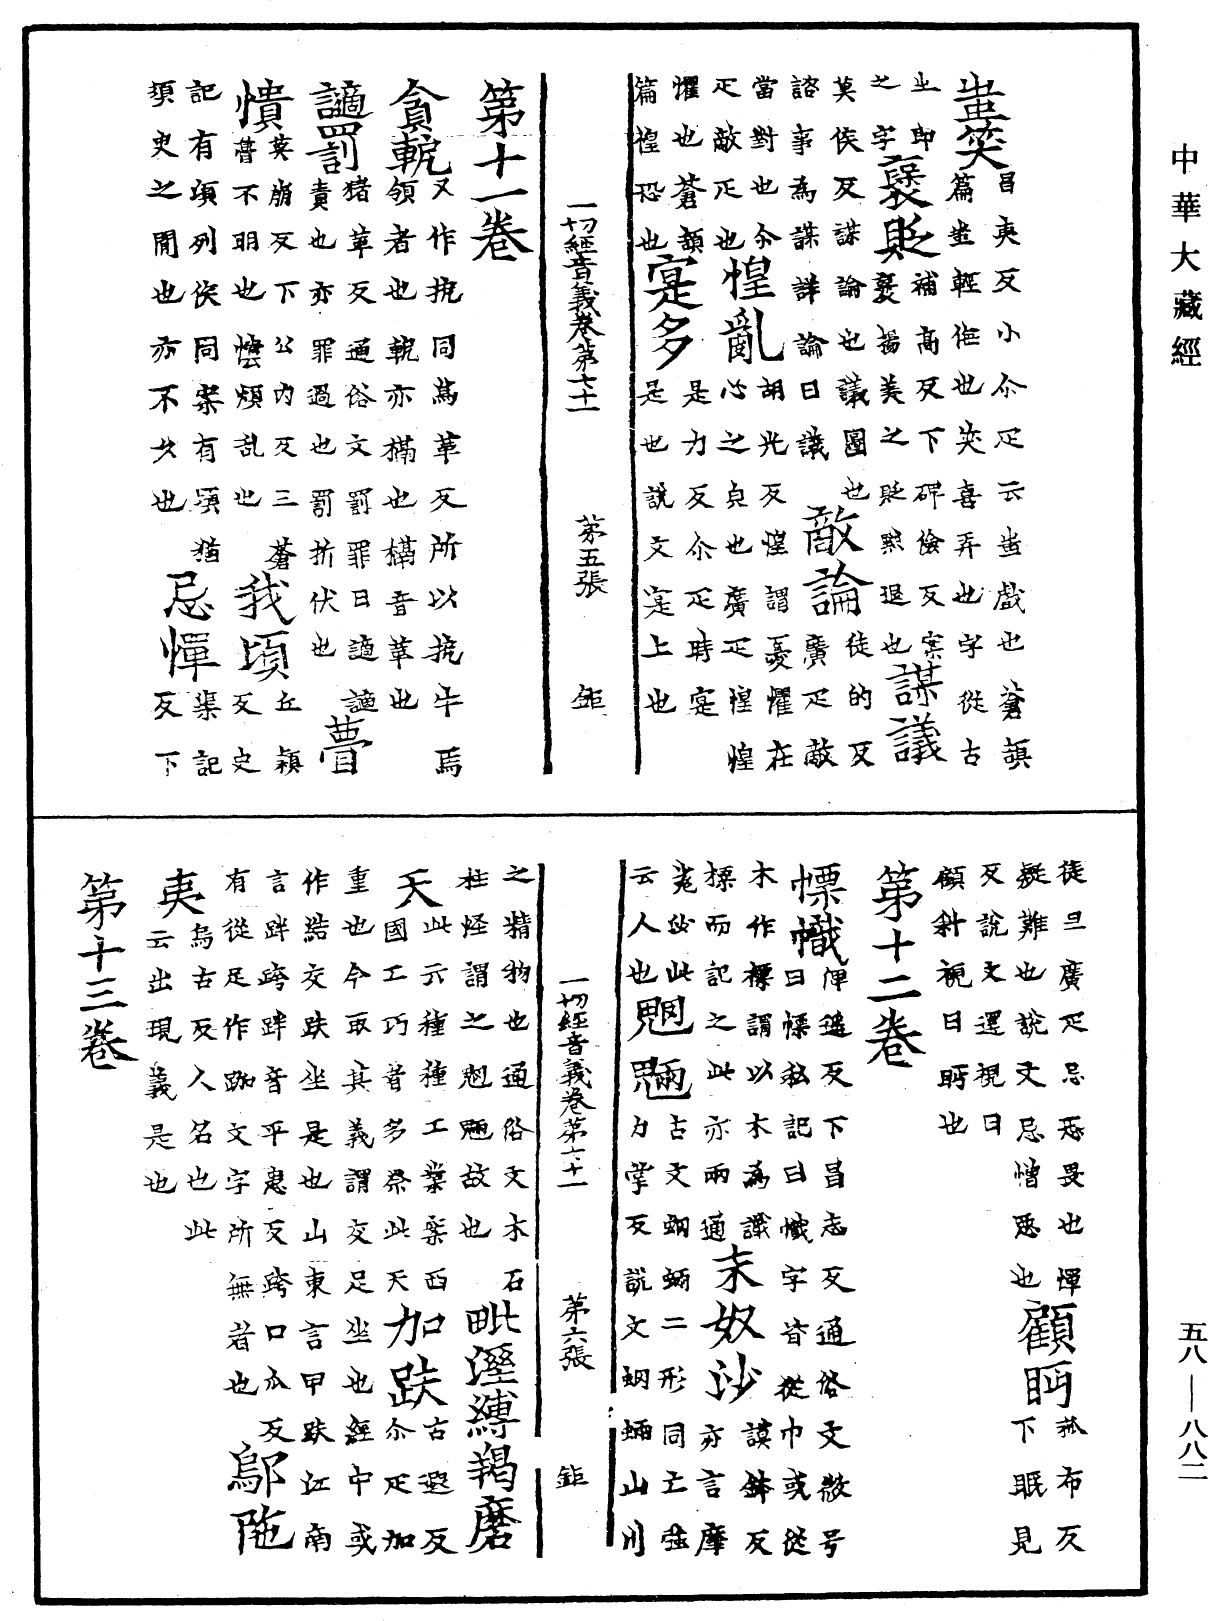 中華大藏經
蚩笑昌夷反小尒疋云蚩戲也蒼頡
篇蚩輕侮也笑喜弄也字從古
之字
㞢即褒貶補高反下碑儉反案
褒揚美之貶黜退也謀議
莫侯反謀論也議圖也
諮事為謀詳論曰議敵論徒的反
廣疋敵
當對也尒
疋敵疋也惶亂胡光反惶謂憂懼在
心之㒵也廣疋惶惶
懼也蒼頡
篇惶恐也寔多是力反尒疋時寔
是也說文寔上也
一切經音義卷第七十一 第五張 鉅
第十一卷
貪軶又作扼同於革反所以扼牛焉
領者也軶亦槅也槅音革也
讁罰猪革反通俗文罰罪曰讁讁
責也亦罪過也罰折伏也瞢
憒莫崩反下公内反三蒼
瞢不明也憒煩乱也我頃丘穎
反史
記有頃列侯同案有頃猶
須臾之間也亦不久也忌憚渠記
反下
徒旦廣疋忌恐畏也憚
疑難也說文忌憎惡也顧眄孤布反
下眠見
反說文還視曰
顧斜視曰眄也
第十二卷
幖幟俾遥反下昌志反通俗文徽号
曰幖私記曰幟字皆從巾或從
木作標謂以木為識
標而記之此亦兩通末奴沙謨鉢反
亦言摩
㝹
云人也魍魎古文蜩蜽二形同亡強
力掌反說文蜩蜽山川
一切經音義卷第七十一 第六張 鉅
之精物也通俗文木石
柱怪謂之魍魎故也毗溼縛羯磨
天此云種種工業案西
國工巧者多祭此天加趺古遐反
尒疋加
重也今取其義謂交足坐也經中或
作結交趺坐是也山東言甲趺江南
言跘跨跘音平患反跨口瓜反
有從足作跏文字所無者也鄔陁
夷烏古反人名也此
云出現義是也
第十三卷
五八—八八二